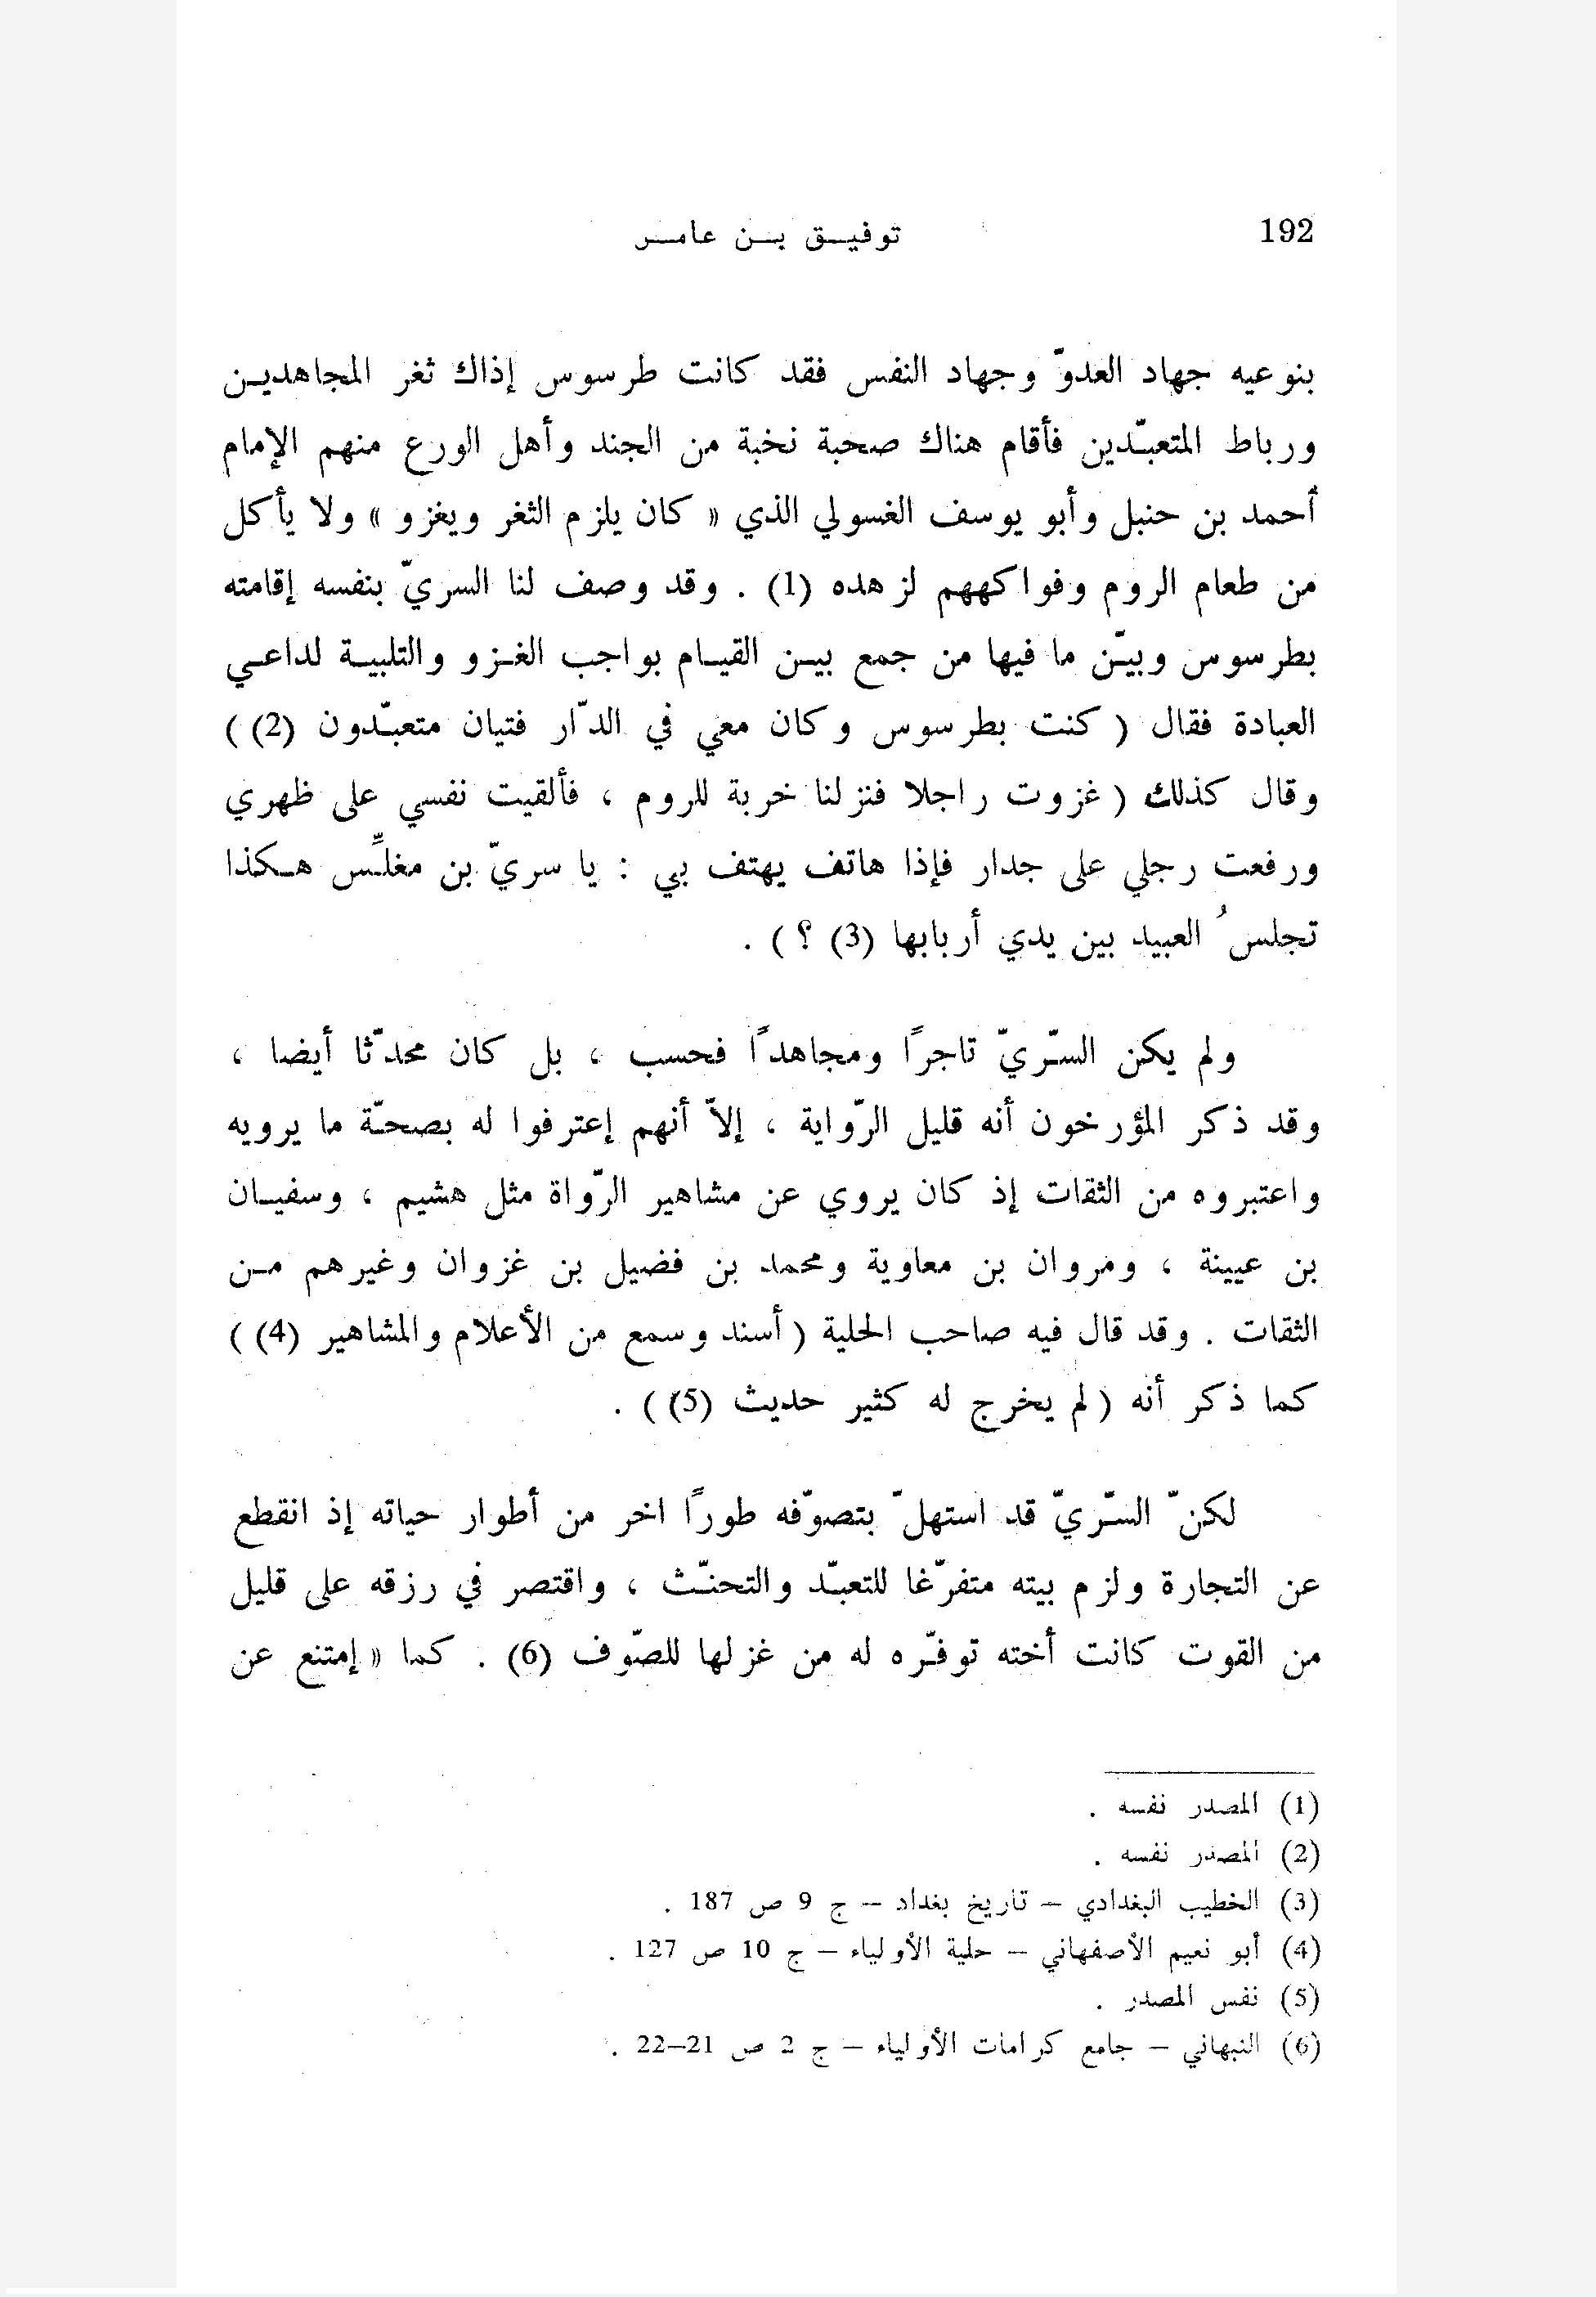 192
توفيق بن عامر
بنوعيه جهاد العدوّ وجهاد النفس فقد كانت طرسوس إذاك ثغر المجاهدين
ورباط المتعبّدين فأقام هناك صحبة نخبة من الجند وأهل الورع منهم الإمام
أحمد بن حنبل وأبو يوسف الغسولي الذي « كان يلزم الثغر ويغزو » ولا يأكل
من طعام الروم وفواكههم لزهده (1) . وقد وصف لنا السريّ بنفسه إقامته
بطرسوس وبيّن ما فيها من جمع بين القيام بواجب الغزو والتلبية لداعي
العبادة فقال ( كنت بطرسوس وكان معي في الدّار فتيان متعبّدون (2) )
وقال كذلك ( غزوت راجلا فنزلنا خربة للروم ، فألقيت نفسي على ظهري
ورفعت رجلي على جدار فإذا هاتف يهتف بي : يا سريّ بن مغلِّس هكذا
تجلسُ العبيد بين يدي أربابها (3) ؟ ) .
ولم يكن السّريّ تاجرًا ومجاهدًا فحسب ، بل كان محدّثا أيضا ،
وقد ذكر المؤرخون أنه قليل الرّواية ، إلاّ أنهم إعترفوا له بصحّة ما يرويه
واعتبروه من الثقات إذ كان يروي عن مشاهير الرّواة مثل هشيم ، وسفيان
بن عيينة ، ومروان بن معاوية ومحمد بن فضيل بن غزوان وغيرهم من
الثقات . وقد قال فيه صاحب الحلية ( أسند وسمع من الأعلام والمشاهير (4) )
كما ذكر أنه ( لم يخرج له كثير حديث (5) ) .
لكنّ السّريّ قد استهلّ بتصوّفه طورًا اخر من أطوار حياته إذ انقطع
عن التجارة ولزم بيته متفرّغا للتعبّد والتحنّث ، واقتصر في رزقه على قليل
من القوت كانت أخته توفّره له من غزلها للصّوف (6) . كما « إمتنع عن
(1) المصدر نفسه .
(2) المصدر نفسه .
(3) الخطيب البغدادي – تاريخ بغداد – ج 9 ص 187 .
(4) أبو نعيم الأصفهاني – حلية الأولياء – ج 10 ص 127 .
(5) نفس المصدر .
(6) النبهاني – جامع كرامات الأولياء – ج 2 ص 21–22 .